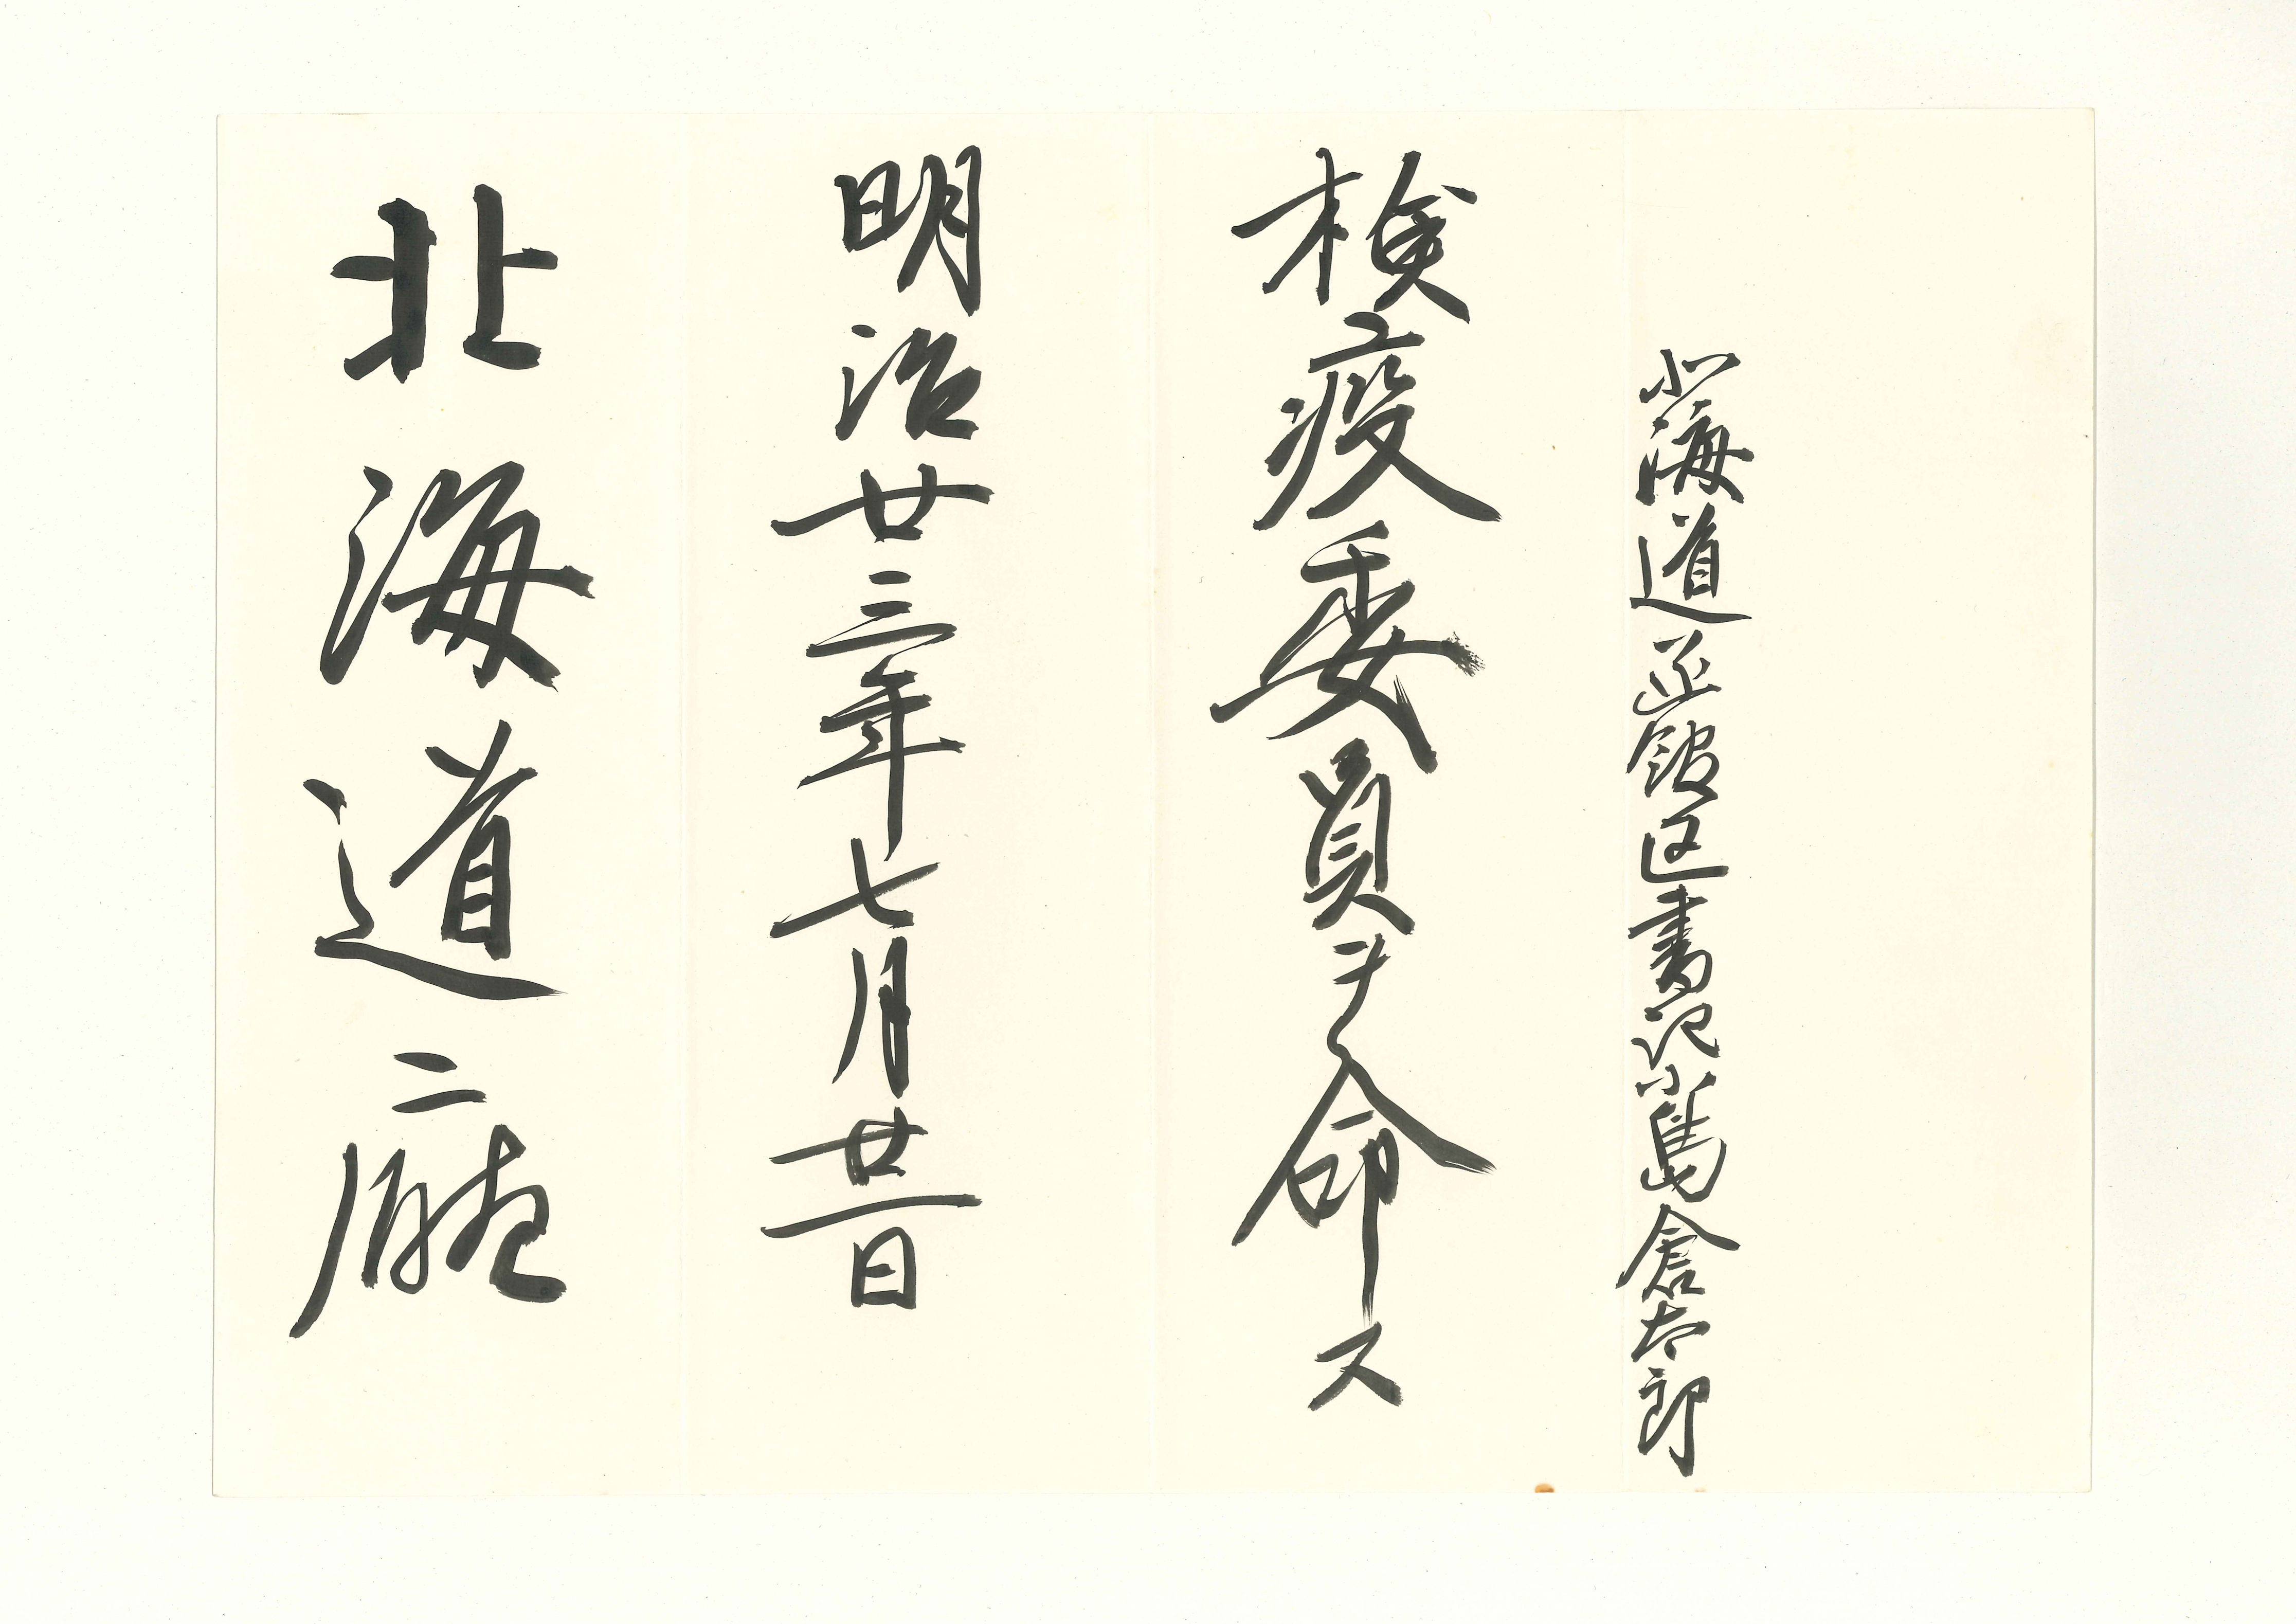 北海道函館区書記小島倉太郎
検疫委員ヲ命ス
明治廿三年七月廿一日
北海道二廳